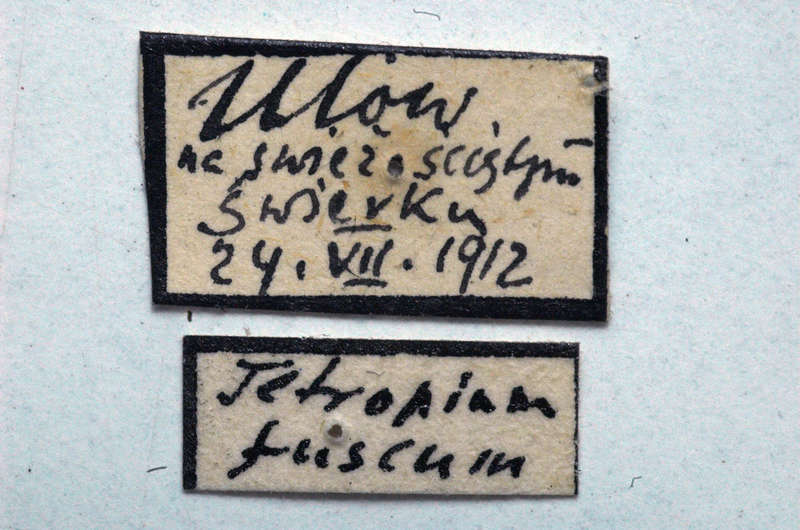 Ulów.
na świeżo ściętym
świerku
24. VII. 1912
Tetropium
fuscum